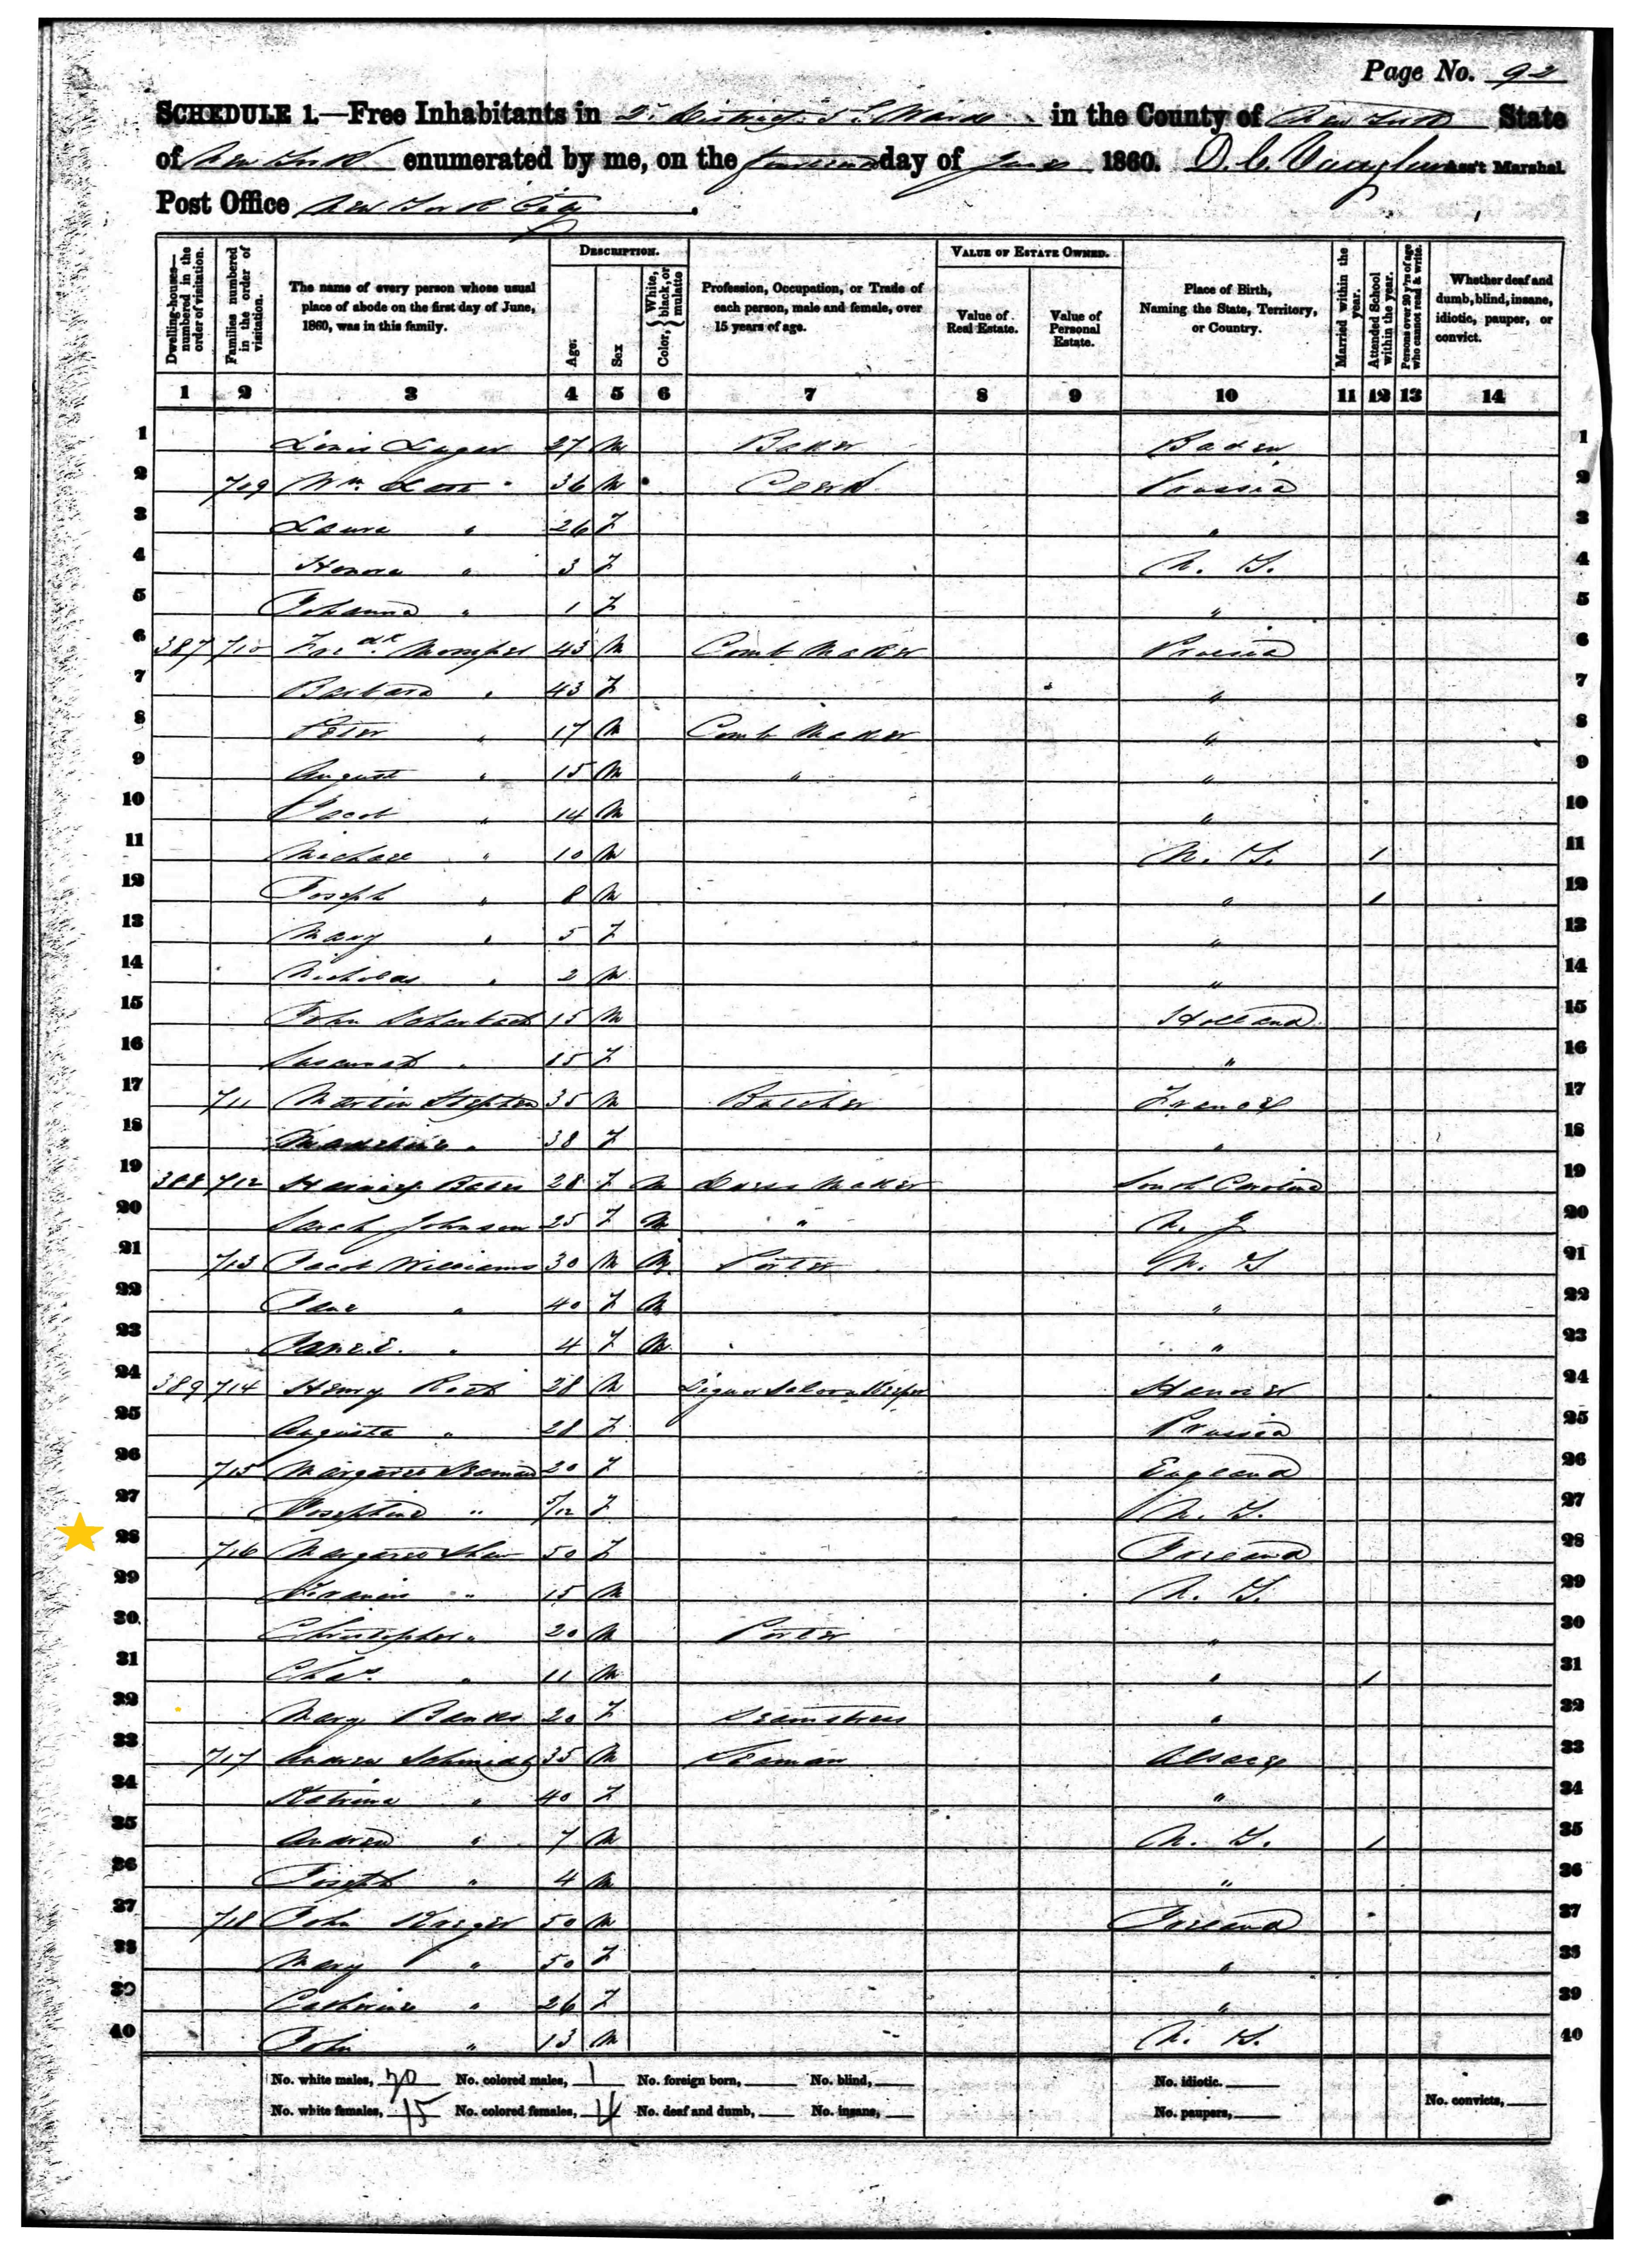 Page No. 92
SCHEDULE 1.—Free Inhabitants in District Ward in the County of New York State
of New York enumerated by me, on the day of June 1860. Ass't Marshal.
Post Office New York City.
Dwelling-houses—numbered in the order of visitation.
Families numbered in the order of visitation.
The name of every person whose usual place of abode on the first day of June, 1860, was in this family.
DESCRIPTION.
Age.
Sex
Color, { White, black, or mulatto
Profession, Occupation, or Trade of each person, male and female, over 15 years of age.
VALUE OF ESTATE OWNED.
Value of Real Estate.
Value of Personal Estate.
Place of Birth, Naming the State, Territory, or Country.
Married within the year.
Attended School within the year.
Persons over 20 y'rs of age who cannot read & write.
Whether deaf and dumb, blind, insane, idiotic, pauper, or convict.
1 2 3 4 5 6 7 8 9 10 11 12 13 14
1 Louis 27 M Baker Baden 1
2 709 Wm 36 M Clerk Prussia 2
3 Laura " 26 F " 3
4 Honora " 3 F N. Y. 4
5 Johanna " 1 F " 5
6 387 710 Fredk. 43 M Comb Maker Prussia 6
7 Barbara " 43 F " 7
8 Peter " 17 M Comb Maker " 8
9 August " 15 M " " 9
10 Jacob " 14 M " 10
11 Michael " 10 M N. Y. 1 11
12 Joseph " 8 M " 1 12
13 Mary " 5 F " 13
14 Nicholas " 2 M " 14
15 John 15 M Holland 15
16 " 15 F " 16
17 711 Martin Stephen 35 M Butcher France 17
18 Madeline " 38 F " 18
19 388 712 28 F M Dress Maker South Carolina 19
20 Sarah Johnson 25 F M " N. J 20
21 713 Jacob Williams 30 M M Porter N. Y 21
22 Jane " 40 F M " 22
23 Jane E. " 4 F M " 23
24 389 714 Henry 28 M Liquor Saloon Keeper Hanover 24
25 Augusta " 28 F Prussia 25
26 715 Margaret Seaman 20 F England 26
27 Josephine " 5/12 F N. Y. 27
28 716 Margaret Shaw 50 F Ireland 28
29 Francis " 15 M N. Y. 29
30 Christopher " 20 M Porter " 30
31 Chas. " 11 M " 1 31
32 Mary Banks 20 F Seamstress " 32
33 717 Andrew Schmidt 35 M Seaman Alsace 33
34 Katrina " 40 F " 34
35 Andrew " 7 M N. Y. 1 35
36 Joseph " 4 M " 36
37 718 John 50 M Ireland 37
38 Mary " 50 F " 38
39 Catherine " 26 F " 39
40 John " 13 M N. Y. 40
No. white males, 20 No. colored males, 1 No. foreign born, No. blind, No. idiotic.
No. white females, 15 No. colored females, 4 No. deaf and dumb, No. insane, No. paupers, No. convicts,